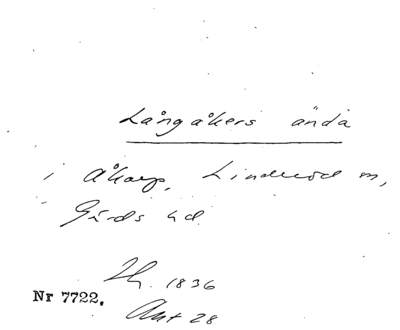 Långåkers ända
i Åkarp, Linderöd sn,
Gärds hd.
Lh. 1836
Nr 7722.
Akt 28